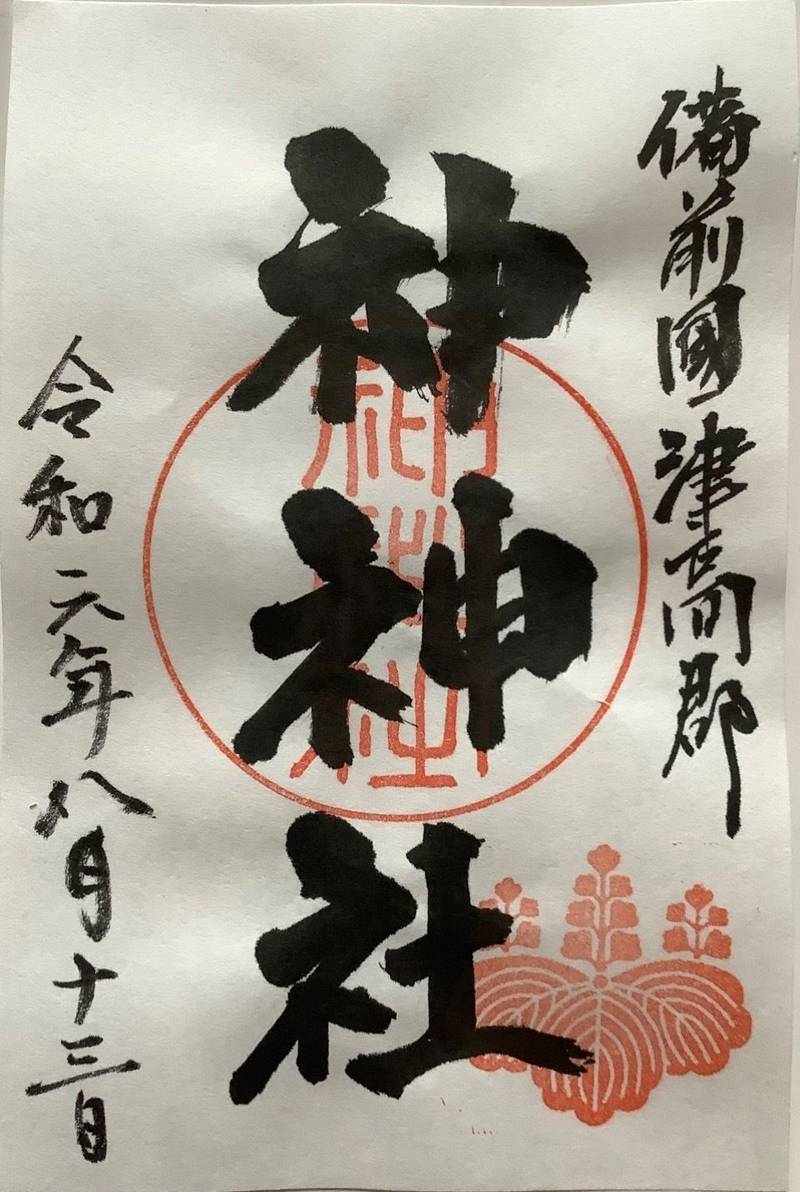 備前國津高郡
神神社
令和元年八月十三日